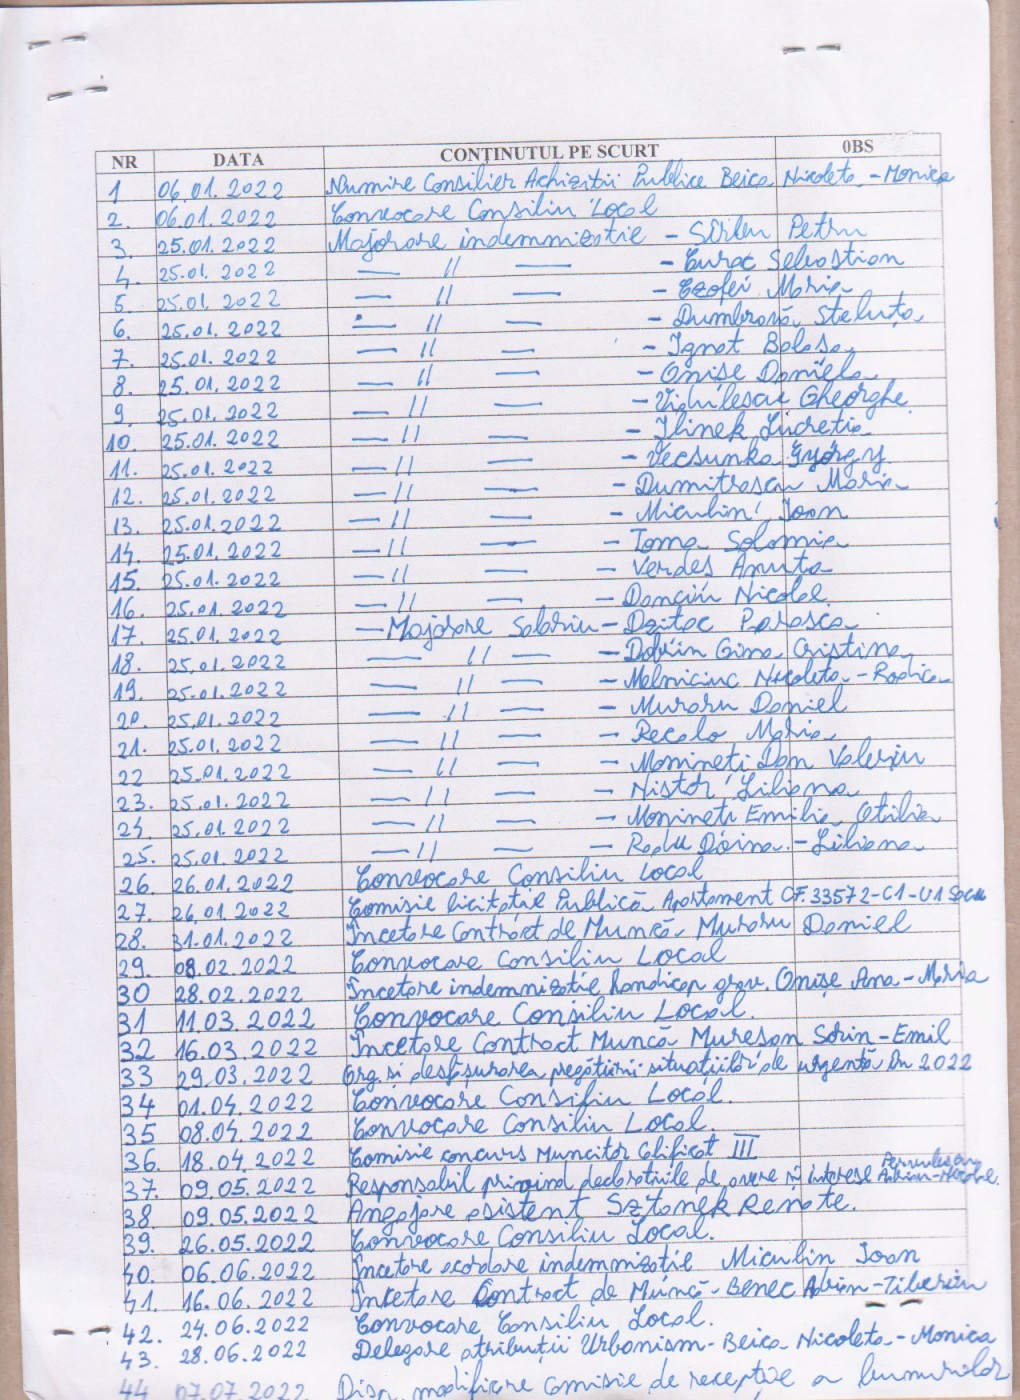 NR DATA CONȚINUTUL PE SCURT 0BS
1 06.01.2022 Numire Consilier Achizitii Publice Beica Nicoleta - Monica
2. 06.01.2022 Convocare Consiliu Local
3. 25.01.2022 Majorare indemnizatie - Sîrbu Petru
4. 25.01.2022 — // — - Curac Sebastian
5 25.01.2022 — // — - Czofei Maria
6. 25.01.2022 — // — - Dumbravă Steluța
7. 25.01.2022 — // — - Ignat Balasa
8. 25.01.2022 — // — - Onise Daniela
9. 25.01.2022 — // — - Gheorghe
10. 25.01.2022 — // — - Ilinek Lucretia
11. 25.01.2022 — // — - Vecsunka György
12. 25.01.2022 — // — - Dumitrascu Maria
13. 25.01.2022 — // — - Miculin Ioan
14. 25.01.2022 — // — - Toma Solomia
15. 25.01.2022 — // — - Verdes Anuta
16. 25.01.2022 — // — - Danciu Nicolae
17. 25.01.2022 — Majorare Salariu - Dzitac Parasca
18. 25.01.2022 — // — - Dobrin Gina Cristina
19. 25.01.2022 — // — - Melniciuc Nicoleta - Rodica
20. 25.01.2022 — // — - Muraru Daniel
21. 25.01.2022 — // — - Recalo Maria
22 25.01.2022 — // — - Momineti Dan Valeriu
23. 25.01.2022 — // — - Nistor Liliana
24 25.01.2022 — // — - Momineti Emilia Otilia
25. 25.01.2022 — // — - Radu Doina - Liliana
26. 26.01.2022 Convocare Consiliu Local
27. 26.01.2022 Comisie licitatie Publică Apartament CF. 33572-C1-U1
28. 31.01.2022 Încetare Contract de Muncă Muraru Daniel
29. 08.02.2022 Convocare Consiliu Local
30 28.02.2022 Încetare indemnizatie handicap grav. Onișe Ana - Maria
31 11.03.2022 Convocare Consiliu Local.
32 16.03.2022 Încetare Contract Muncă Muresan Sorin - Emil
33 29.03.2022 Org. și desfășurarea pregătirii situațiilor de urgentă în 2022
34 01.04.2022 Convocare Consiliu Local.
35 08.04.2022 Convocare Consiliu Local.
36. 18.04.2022 Comisie concurs Muncitor Calificat III
37. 09.05.2022 Responsabil privind declaratiile de avere si interese Adrian-Nicolae.
38 09.05.2022 Angajare asistent Sztanek Renate.
39. 26.05.2022 Convocare Consiliu Local.
40. 06.06.2022 Încetare acordare indemnizatie Miculin Ioan
41. 16.06.2022 Încetare Contract de Muncă - Benec Adrian-Tiberiu
42. 24.06.2022 Convocare Consiliu Local.
43. 28.06.2022 Delegare atribuții Urbanism - Beica Nicoleta - Monica
44 07.07.2022 Disp. modificare comisie de receptie a bunurilor